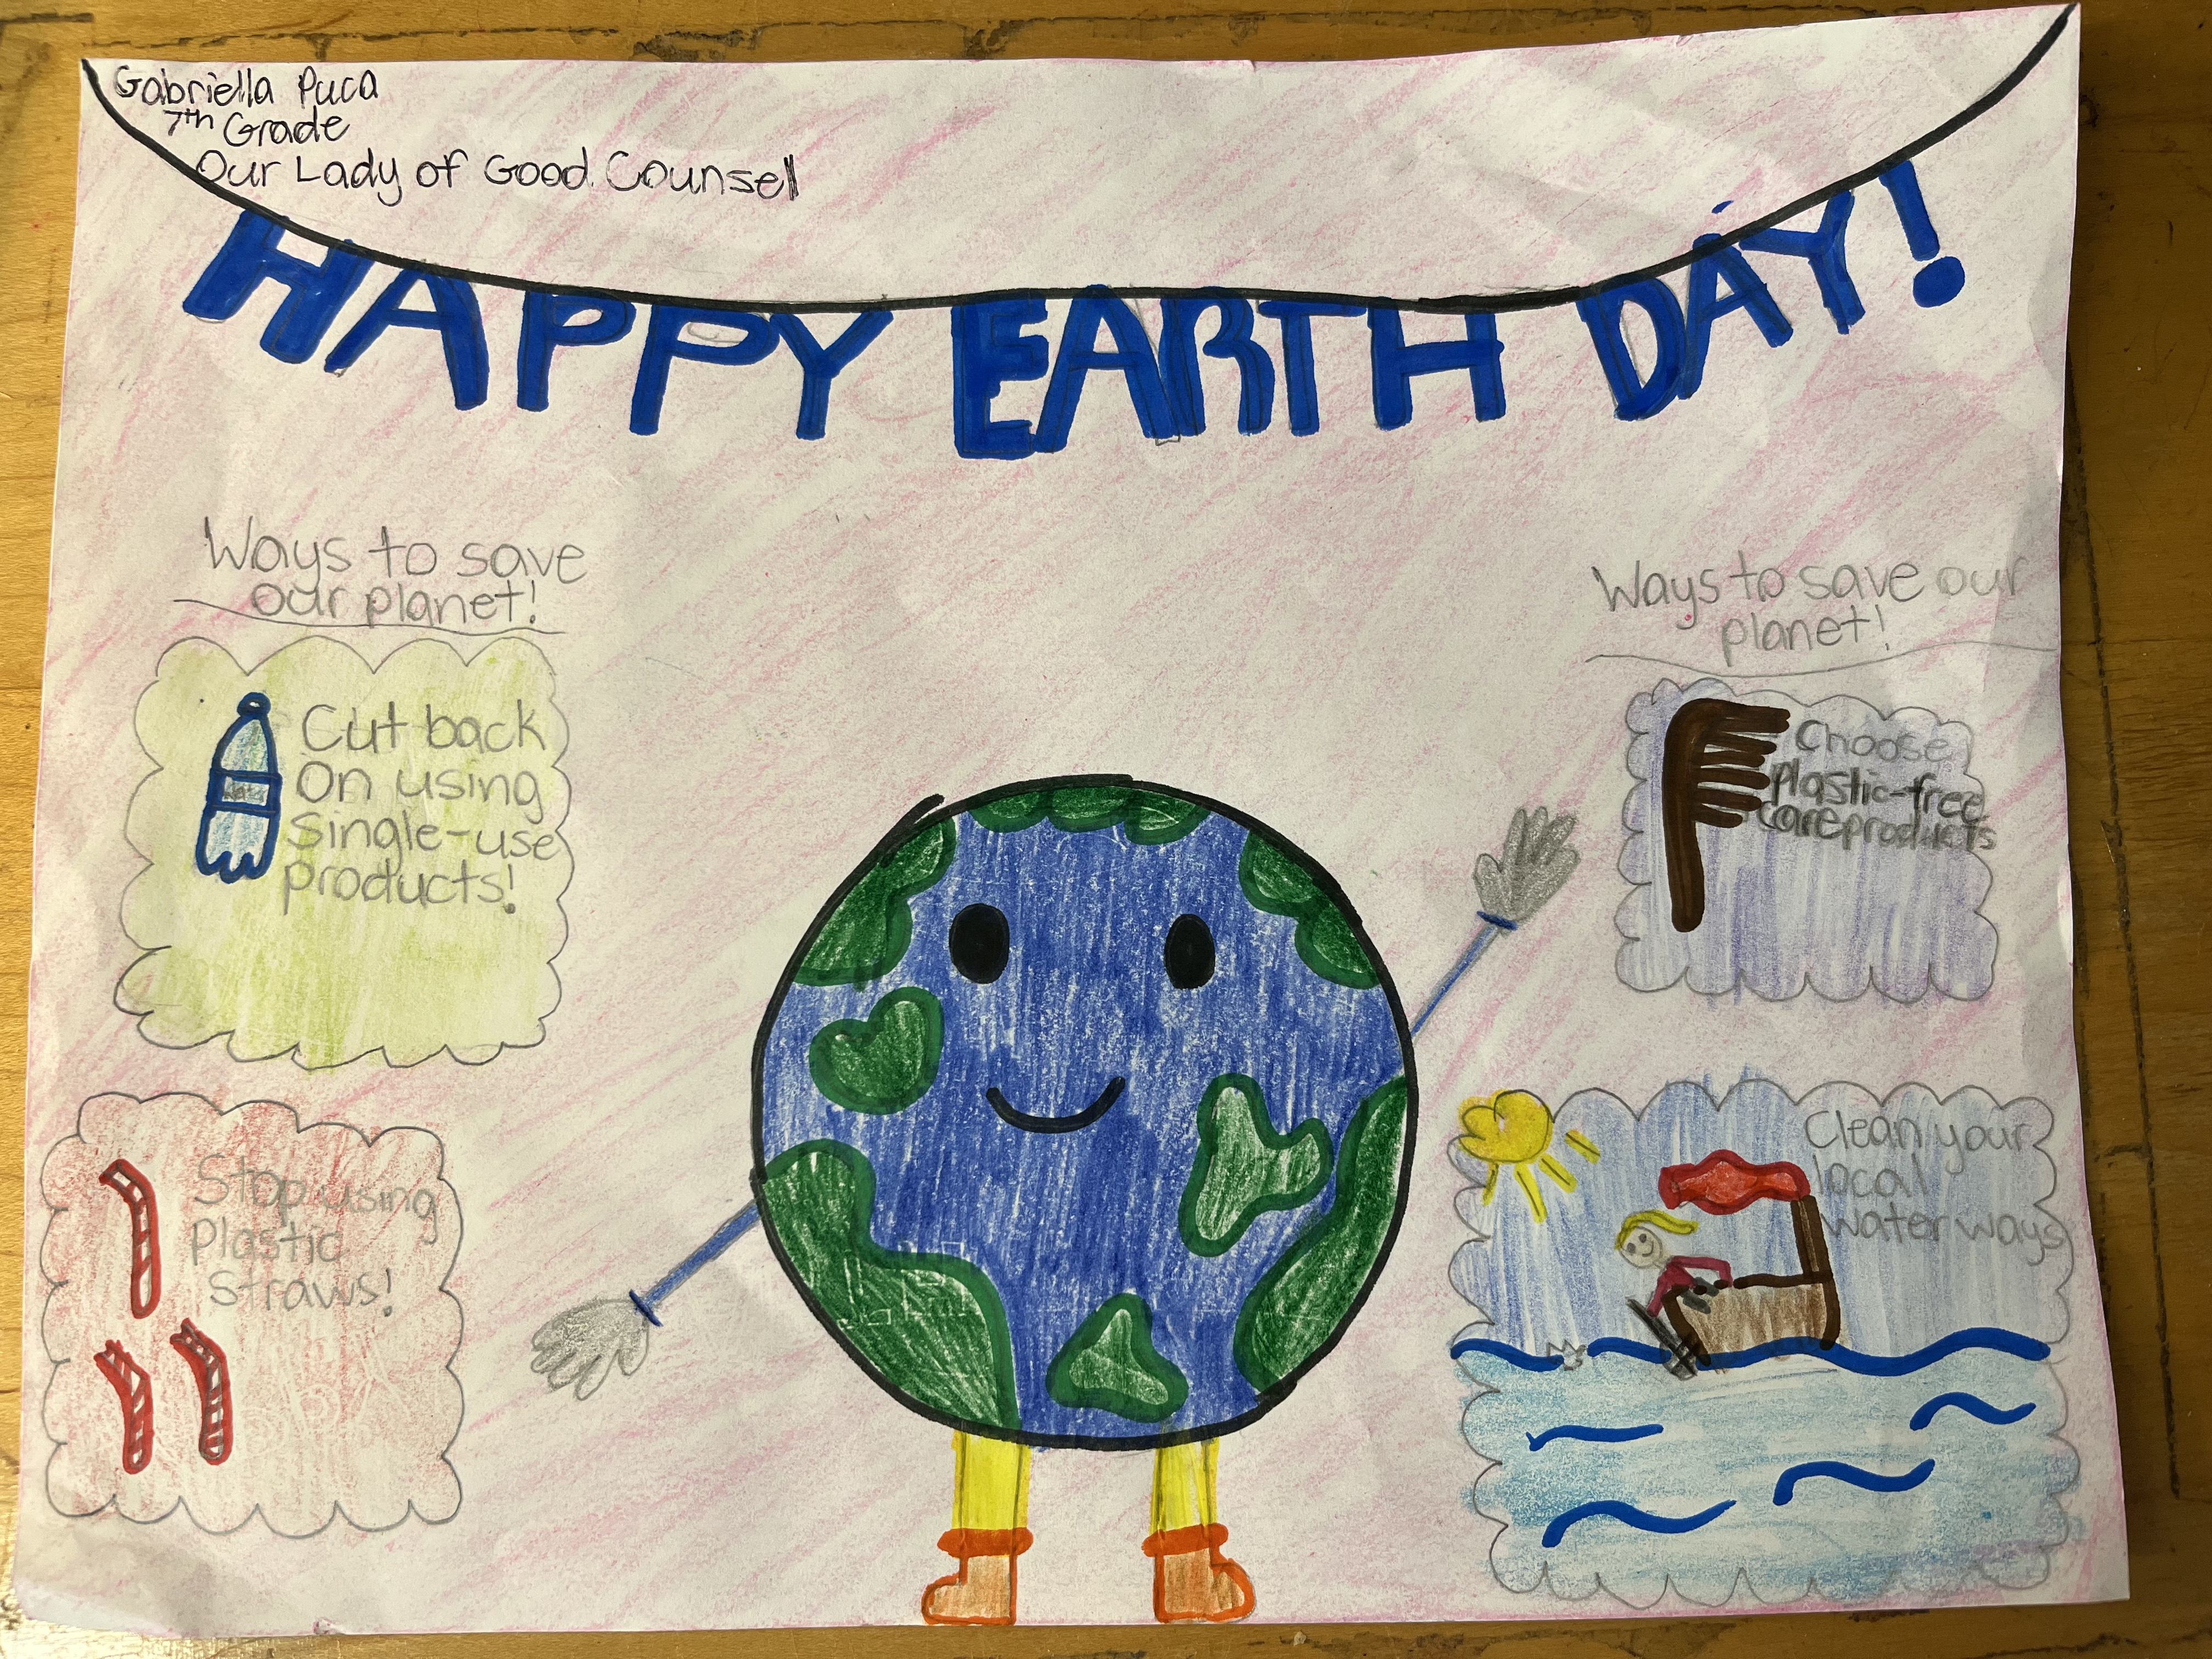 Gabriella Puca
7th Grade
Our Lady of Good Counsel
HAPPY EARTH DAY!
Ways to save
our planet!
Cut back
On using
single-use
products!
Stop using
Plastic
Straws!
Ways to save our
planet!
Choose
plastic-free
care products
Clean your
local
water ways